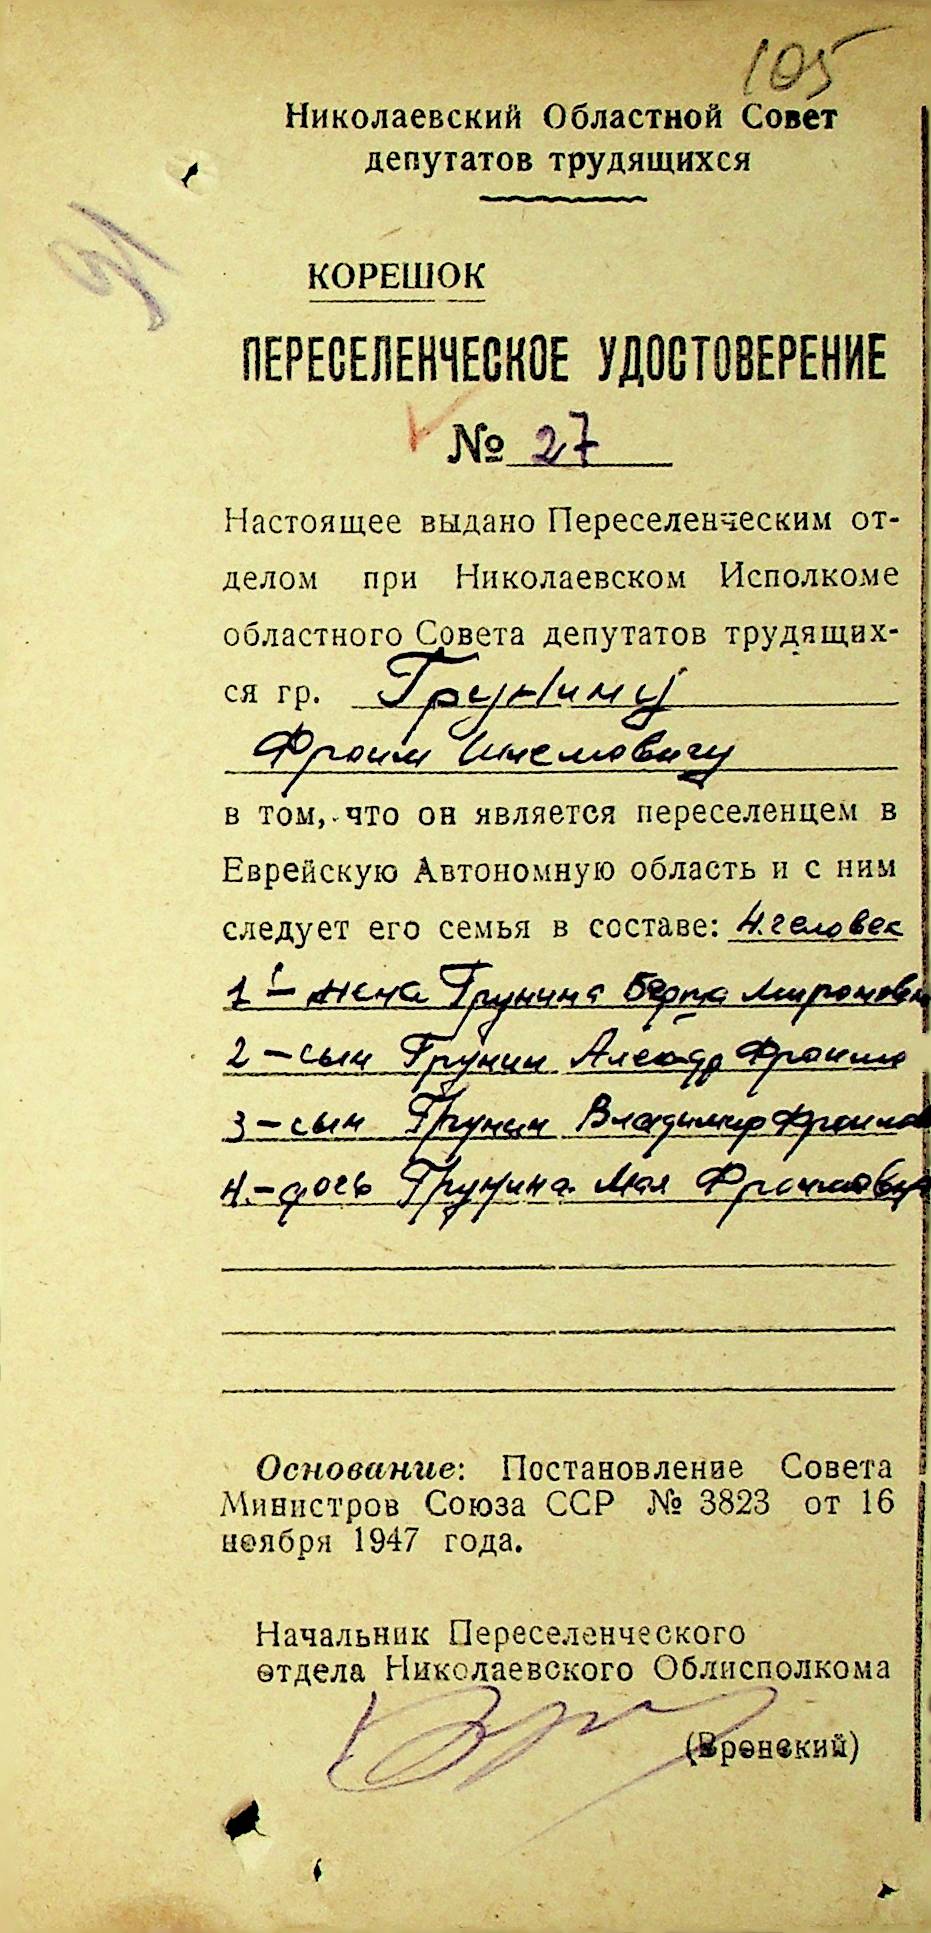 105
Николаевский Областной Совет
депутатов трудящихся
КОРЕШОК
ПЕРЕСЕЛЕНЧЕСКОЕ УДОСТОВЕРЕНИЕ
№ 27
Настоящее выдано Переселенческим от-
делом при Николаевском Исполкоме
областного Совета депутатов трудящих-
ся гр. Грунину
Фроим Шлемовичу
в том, что он является переселенцем в
Еврейскую Автономную область и с ним
следует его семья в составе: 4 человек
1 - жена Грунина Берта Мироновна
2 - сын Грунин Александр Фроимо
3 - сын Грунин Владимир Фроимов
4. - дочь Грунина Мая Фроимовна
Основание: Постановление Совета
Министров Союза ССР № 3823 от 16
ноября 1947 года.
Начальник Переселенческого
отдела Николаевского Облисполкома
(Вронский)